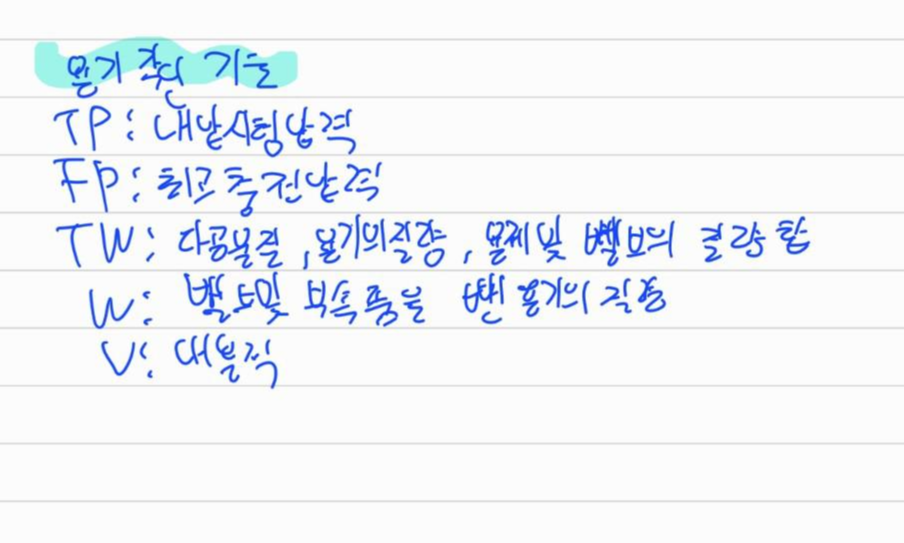 용기 각인 기호
TP: 내압시험압력
FP: 최고충전압력
TW: 다공물질, 용기의질량, 용제및 밸브의 질량 합
W: 밸브및 부속품을 뺀 용기의 질량
V: 내용적